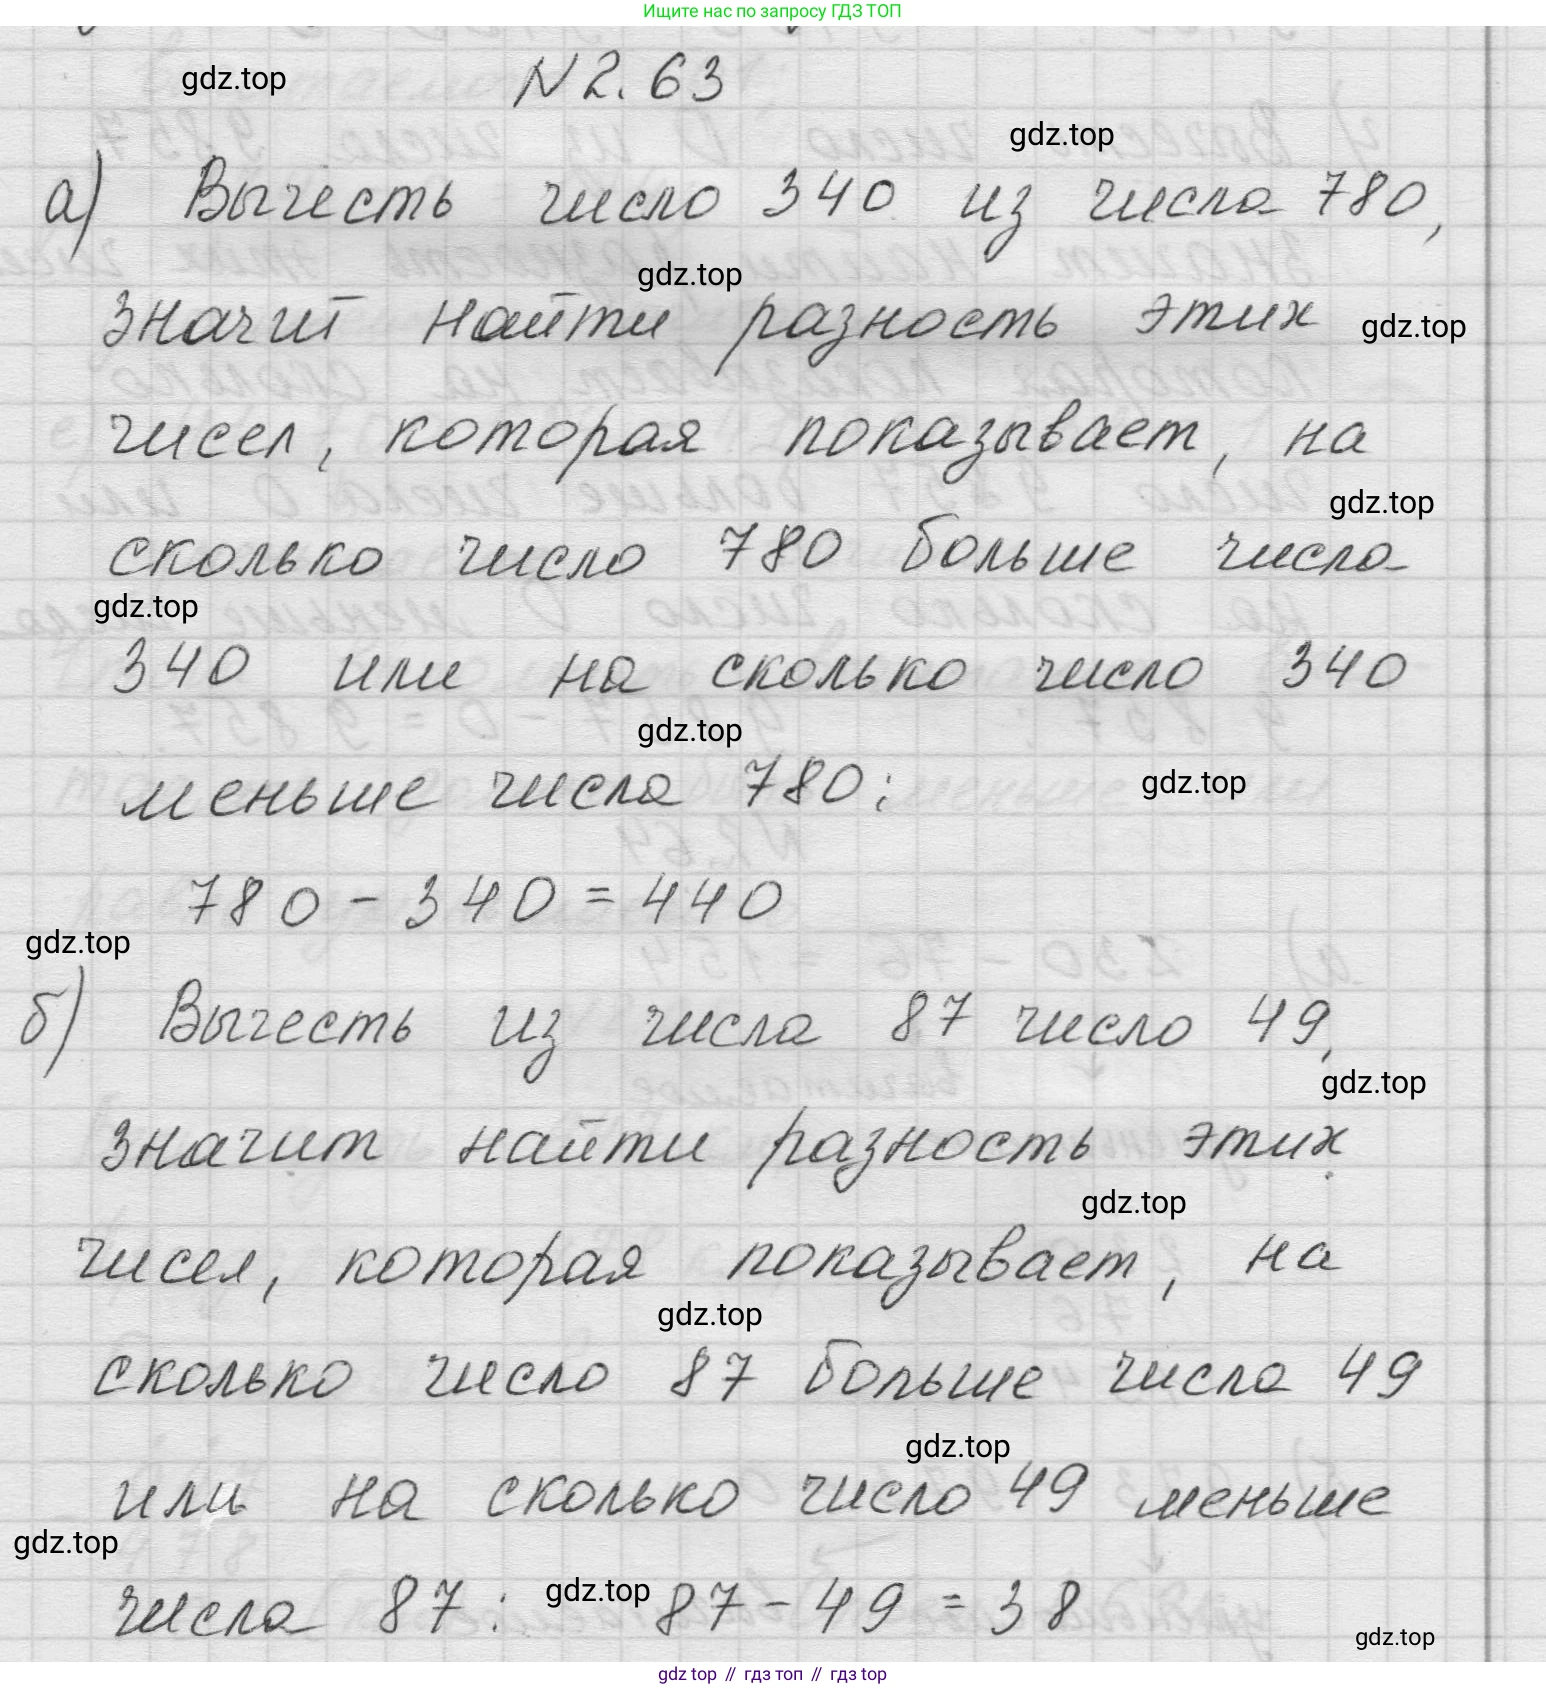 Ищите нас по запросу ГДЗ ТОП
N 2.63
gdz.top
gdz.top
а) Вычесть число 340 из числа 780,
gdz.top
значит найти разность этих
gdz.top
чисел, которая показывает, на
gdz.top
сколько число 780 больше числа
gdz.top
340 или на сколько число 340
gdz.top
меньше числа 780:
gdz.top
780 - 340 = 440
gdz.top
б) Вычесть из числа 87 число 49,
gdz.top
значит найти разность этих
gdz.top
чисел, которая показывает, на
gdz.top
сколько число 87 больше числа 49
gdz.top
или на сколько число 49 меньше
gdz.top
числа 87: 87 - 49 = 38
gdz.top
gdz.top
gdz top // гдз топ // gdz top